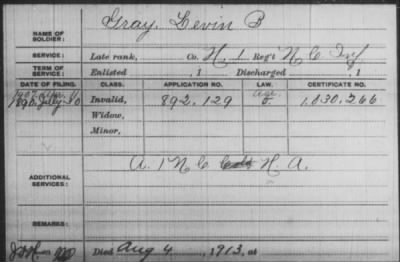 NAME OF SOLDIER: Gray, Levin B
SERVICE: Late rank, Co. H, 1 Reg't N C Inf
TERM OF SERVICE: Enlisted , 1 Discharged , 1
DATE OF FILING. CLASS. APPLICATION NO. LAW. CERTIFICATE NO.
1907 Apr.
1890 July 30 Invalid, 892,129 Age 1,030,266
Widow,
Minor,
ADDITIONAL SERVICES: A. 1 N C H. A.
REMARKS:
Died Aug 4, 1913, at